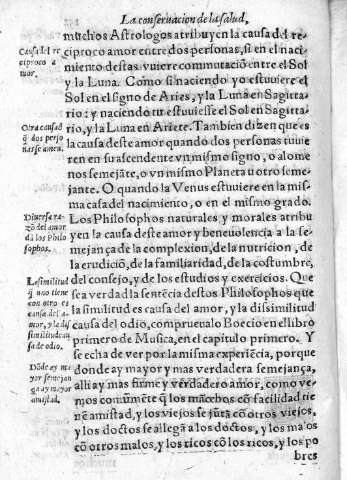 La conseruacion de la salud,
muchos Astrologos atribuyen la causa del re
ciproco amor entre dos personas, si en el naci
miento destas vuiere commutaciō entre el Sol
y la Luna. Como si naciendo yo estuuiere el
Sol en el signo de Aries, y la Luna en Sagitta
rio: y naciendo tu estuuiesse el Sol en Sagitta
rio, y la Luna en Ariete. Tambien dizen que es
la causa deste amor quando dos personas tuuie
ren en su ascendente vn mismo signo, o alome
nos semejāte, o vn mismo Planeta u otro seme-
jante. O quando la Venus estuuiere en la mis-
ma casa del nacimiento, o en el mismo grado.
Los Philosophos naturales y morales atribu
yen la causa deste amor y beneuolencia a la se-
mejança de la complexion, de la nutricion, de
la erudiciō, de la familiaridad, de la costumbre,
del consejo, y de los estudios y exercicios. Que
sea verdad la sentēcia destos Philosophos que
la similitud es causa del amor, y la disimilitud
causa del odio, comprueualo Boecio en el libro
primero de Musica, en el capitulo primero. Y
se echa de ver por la misma experiēcia, porque
donde ay mayor y mas verdadera semejança,
alli ay mas firme y verdadero amor, como ve-
mos comūmēte q̄ los mācebos cō facilidad tie
nē amistad, y los viejos se jūtā cō otros viejos,
y los doctos se allegā a los doctos, y los malos
cō otros malos, y los ricos cō los ricos, y los po
bres
Causa del re
ciproco a
mor.
Otra causa d̄
q̄ dos perso
nas se amen.
Diuersa ra-
zō del amor
dā los Philo
sophos.
La similitud
q̄ vno tiene
con otro es
causa del a-
mor, y la di
similitud cau
sa de odio.
Dōde ay ma
yor semejan
ça ay mayor
amistad.